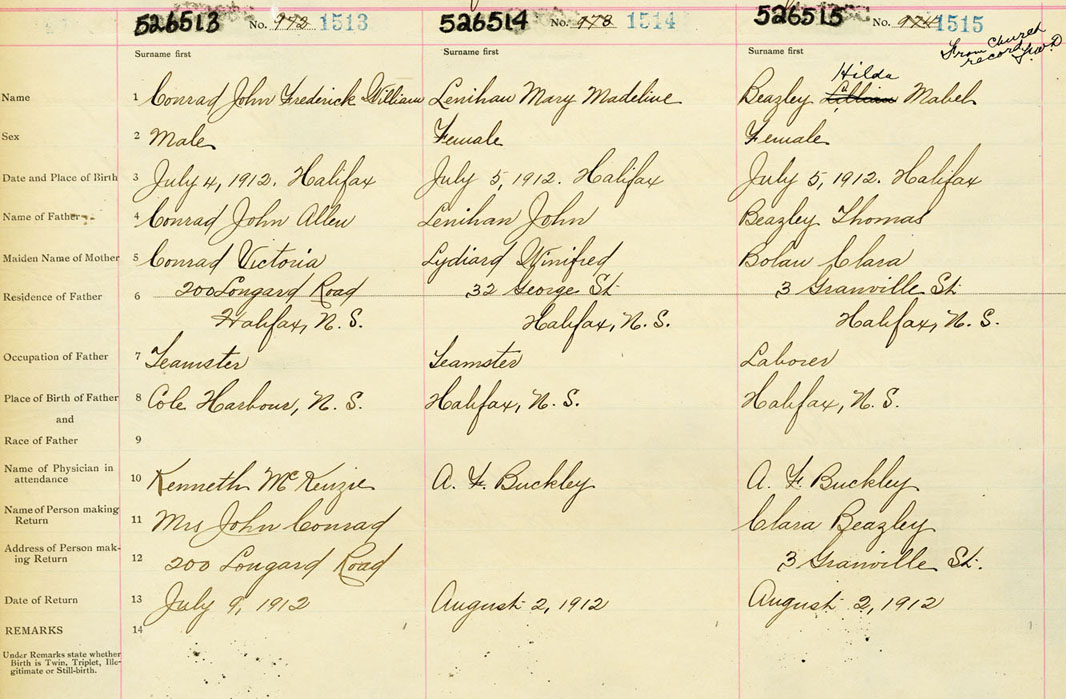 526513 No. 973 1513 526514 No. 978 1514 526515 No. 1515
Surname first Surname first Surname first From Church
record J.W.D
Hilda
Name 1 Conrad John Frederick William Lenihan Mary Madeline Beazley Lillian Mabel
Sex 2 Male Female Female
Date and Place of Birth 3 July 4, 1912. Halifax July 5, 1912. Halifax July 5, 1912. Halifax
Name of Father 4 Conrad John Allen Lenihan John Beazley Thomas
Maiden Name of Mother 5 Conrad Victoria Lydiard Winifred Bolan Clara
Residence of Father 6 200 Longard Road 32 George St. 3 Granville St.
Halifax, N. S. Halifax, N. S. Halifax, N. S.
Occupation of Father 7 Teamster Teamster Laborer
Place of Birth of Father 8 Cole Harbour, N. S. Halifax, N. S. Halifax, N. S.
and
Race of Father 9
Name of Physician in
attendance 10 Kenneth McKenzie A. F. Buckley A. F. Buckley
Name of Person making
Return 11 Mrs John Conrad Clara Beazley
Address of Person mak-
ing Return 12 200 Longard Road 3 Granville St.
Date of Return 13 July 9, 1912 August 2, 1912 August 2, 1912
REMARKS 14
Under Remarks state whether
Birth is Twin, Triplet, Ille-
gitimate or Still-birth.